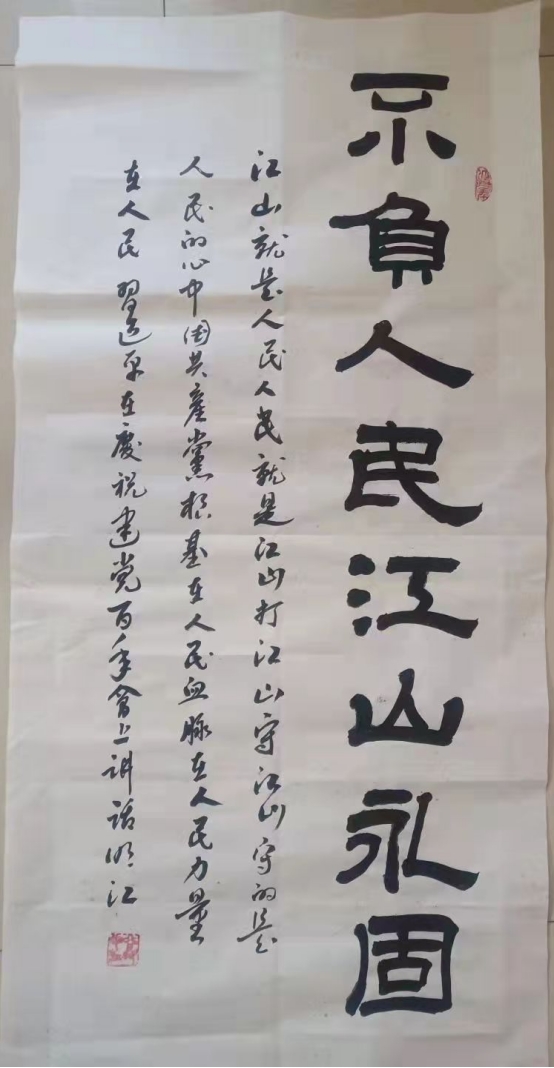 不負人民江山永固
江山就是人民人民就是江山打江山守江山守的是
人民的心中国共産黨根基在人民血脉在人民力量
在人民 習近平在慶祝建党百年會上讲話 江